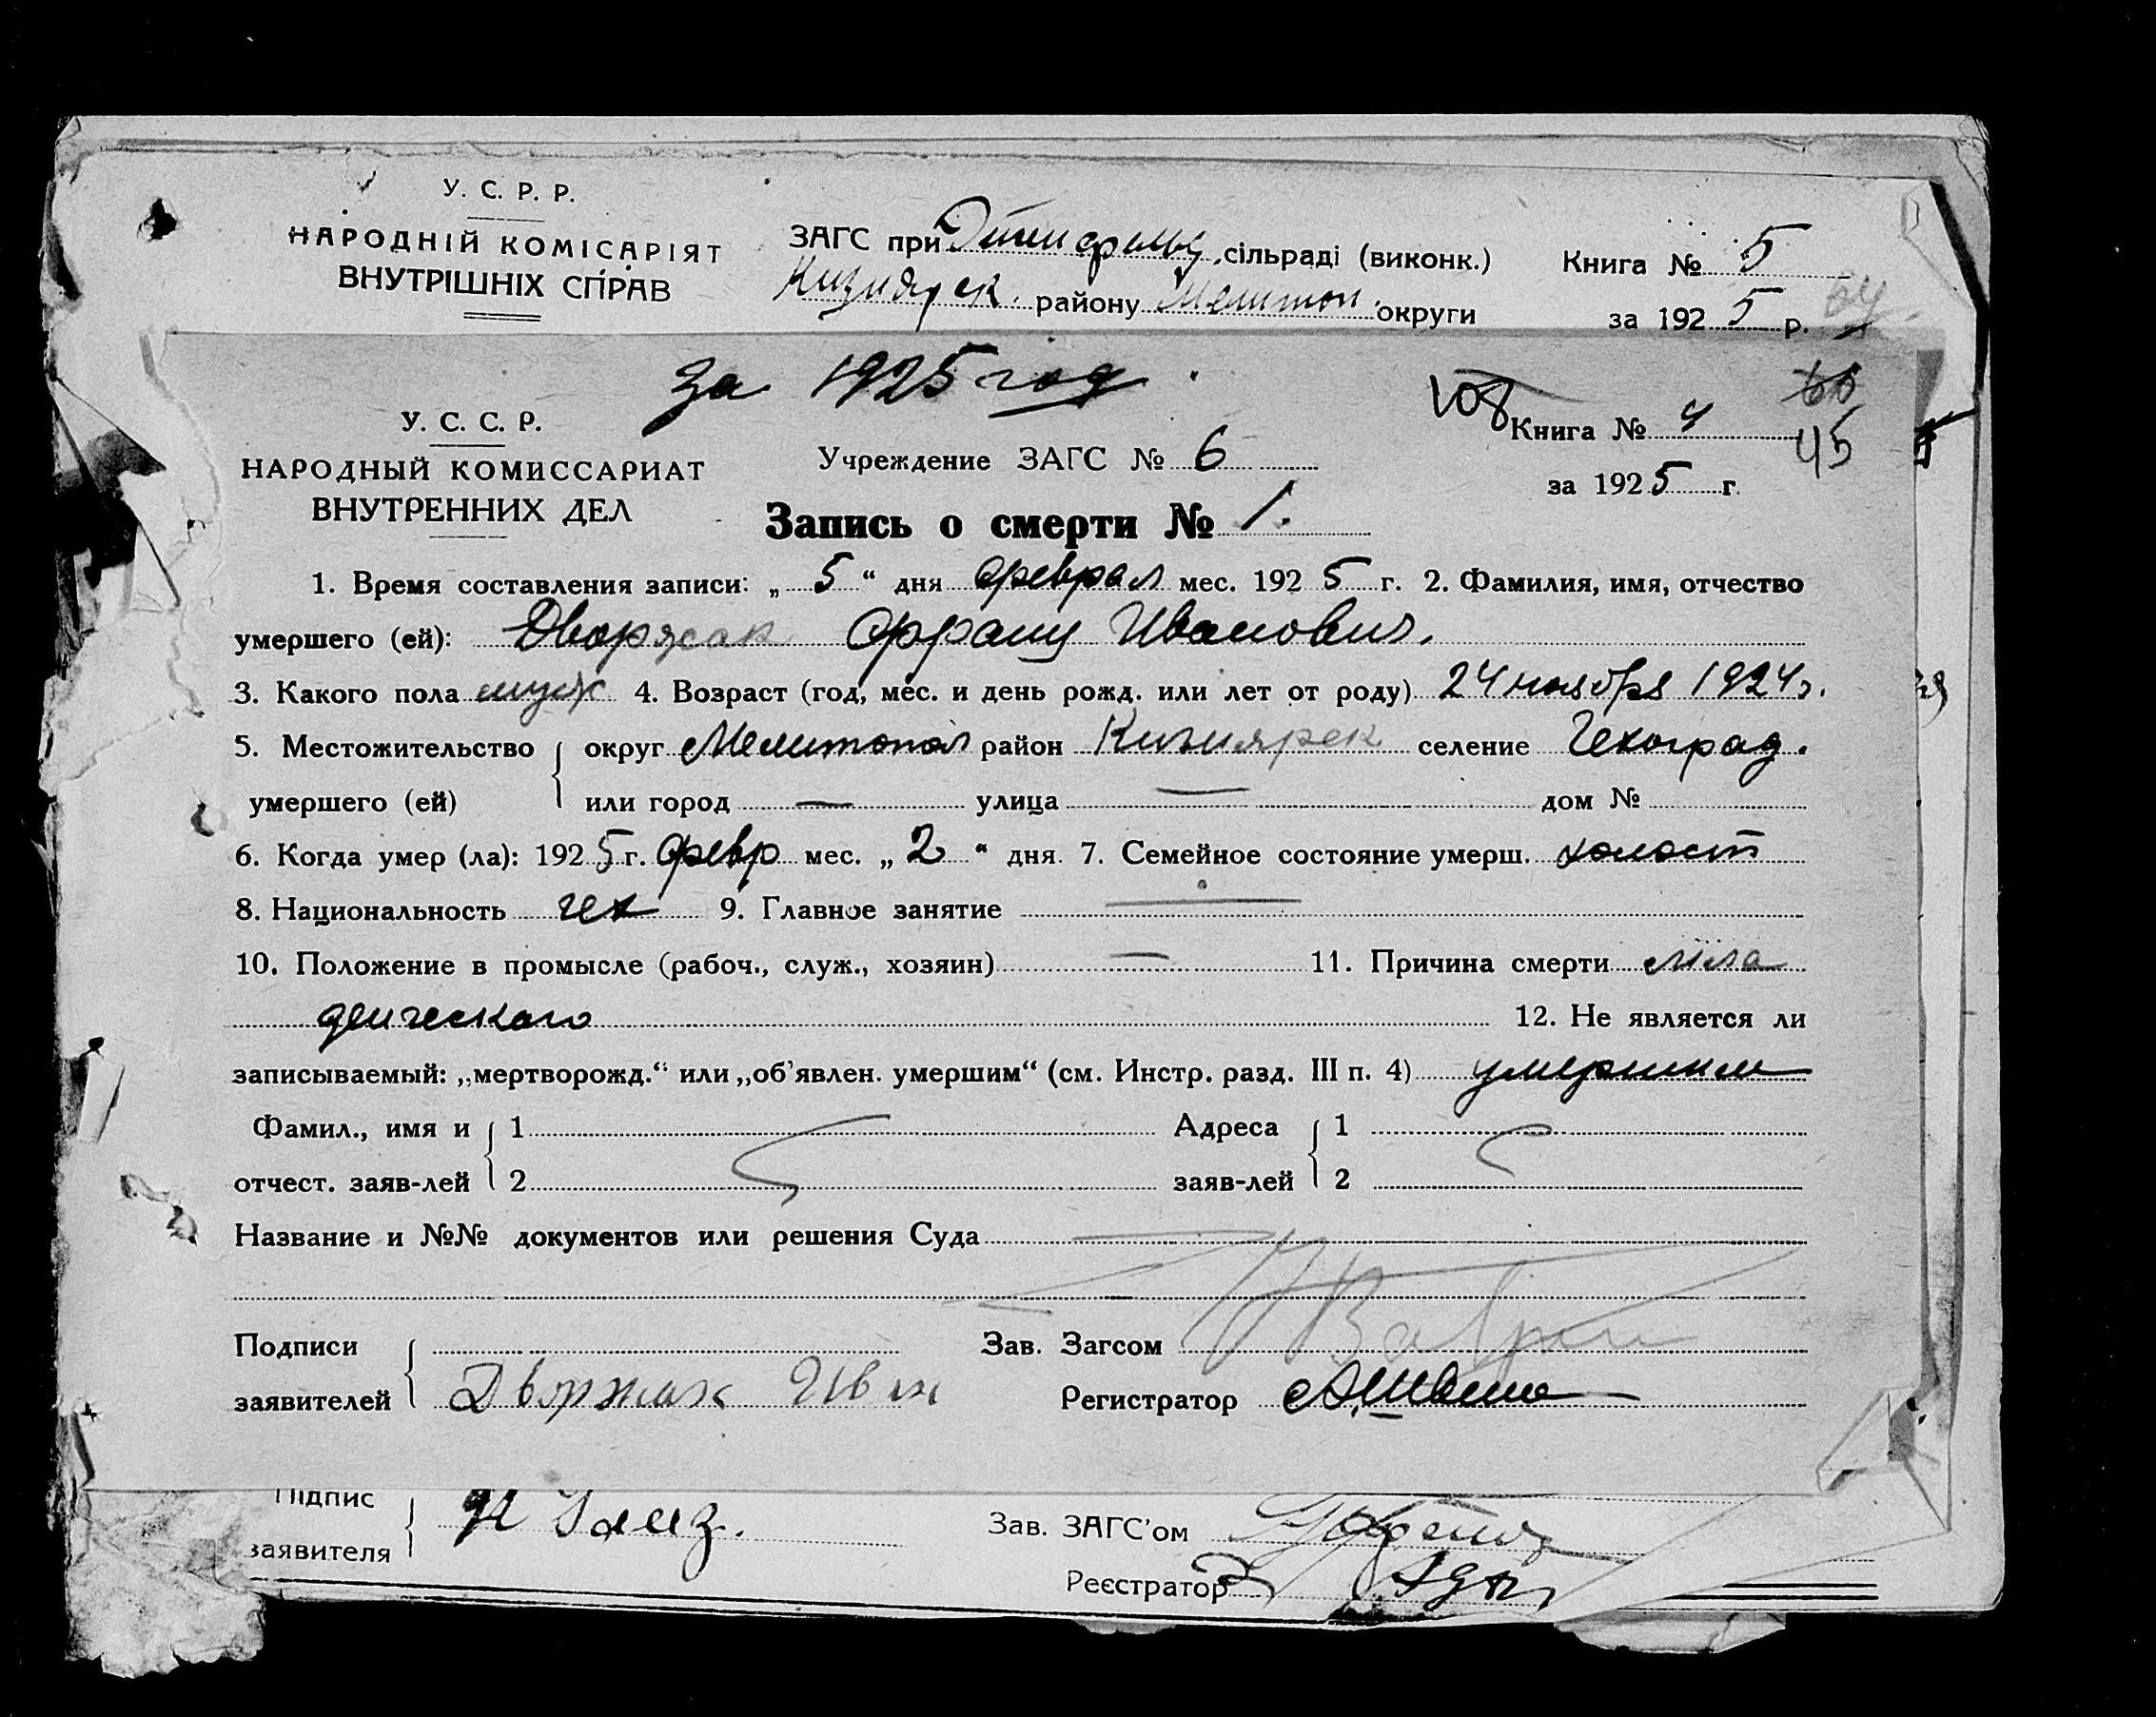 У. С. Р. Р.
НАРОДНІЙ КОМІСАРІЯТ
ВНУТРІШНІХ СПРАВ
ЗАГС при сільраді (виконк.)
Кизиярск. району Мелитоп. округи
Книга № 5
за 1925 р. 64
за 1925 год
108
60
45
У. С. С. Р.
НАРОДНЫЙ КОМИССАРИАТ
ВНУТРЕННИХ ДЕЛ
Учреждение ЗАГС № 6
Книга № 4
за 1925 г.
Запись о смерти № 1.
1. Время составления записи: „ 5 “ дня феврал мес. 1925 г. 2. Фамилия, имя, отчество
умершего (ей): Дворжак Франц Иванович.
3. Какого пола муж 4. Возраст (год, мес. и день рожд. или лет от роду) 24 ноября 1924 г.
5. Местожительство округ Мелитопол район Кизиярск селение Чехоград.
умершего (ей) или город — улица — дом №
6. Когда умер (ла): 1925 г. февр мес. „ 2 “ дня. 7. Семейное состояние умерш. холост
8. Национальность чех 9. Главное занятие —
10. Положение в промысле (рабоч., служ., хозяин) — 11. Причина смерти мла
денческаго 12. Не является ли
записываемый: „мертворожд.“ или „об’явлен. умершим“ (см. Инстр. разд. III п. 4) умершим
Фамил., имя и 1 Адреса 1
отчест. заяв-лей 2 заяв-лей 2
Название и №№ документов или решения Суда
Подписи Зав. Загсом
заявителей Дворжак Иван Регистратор
Підпис
заявителя
Зав. ЗАГС’ом
Реєстратор